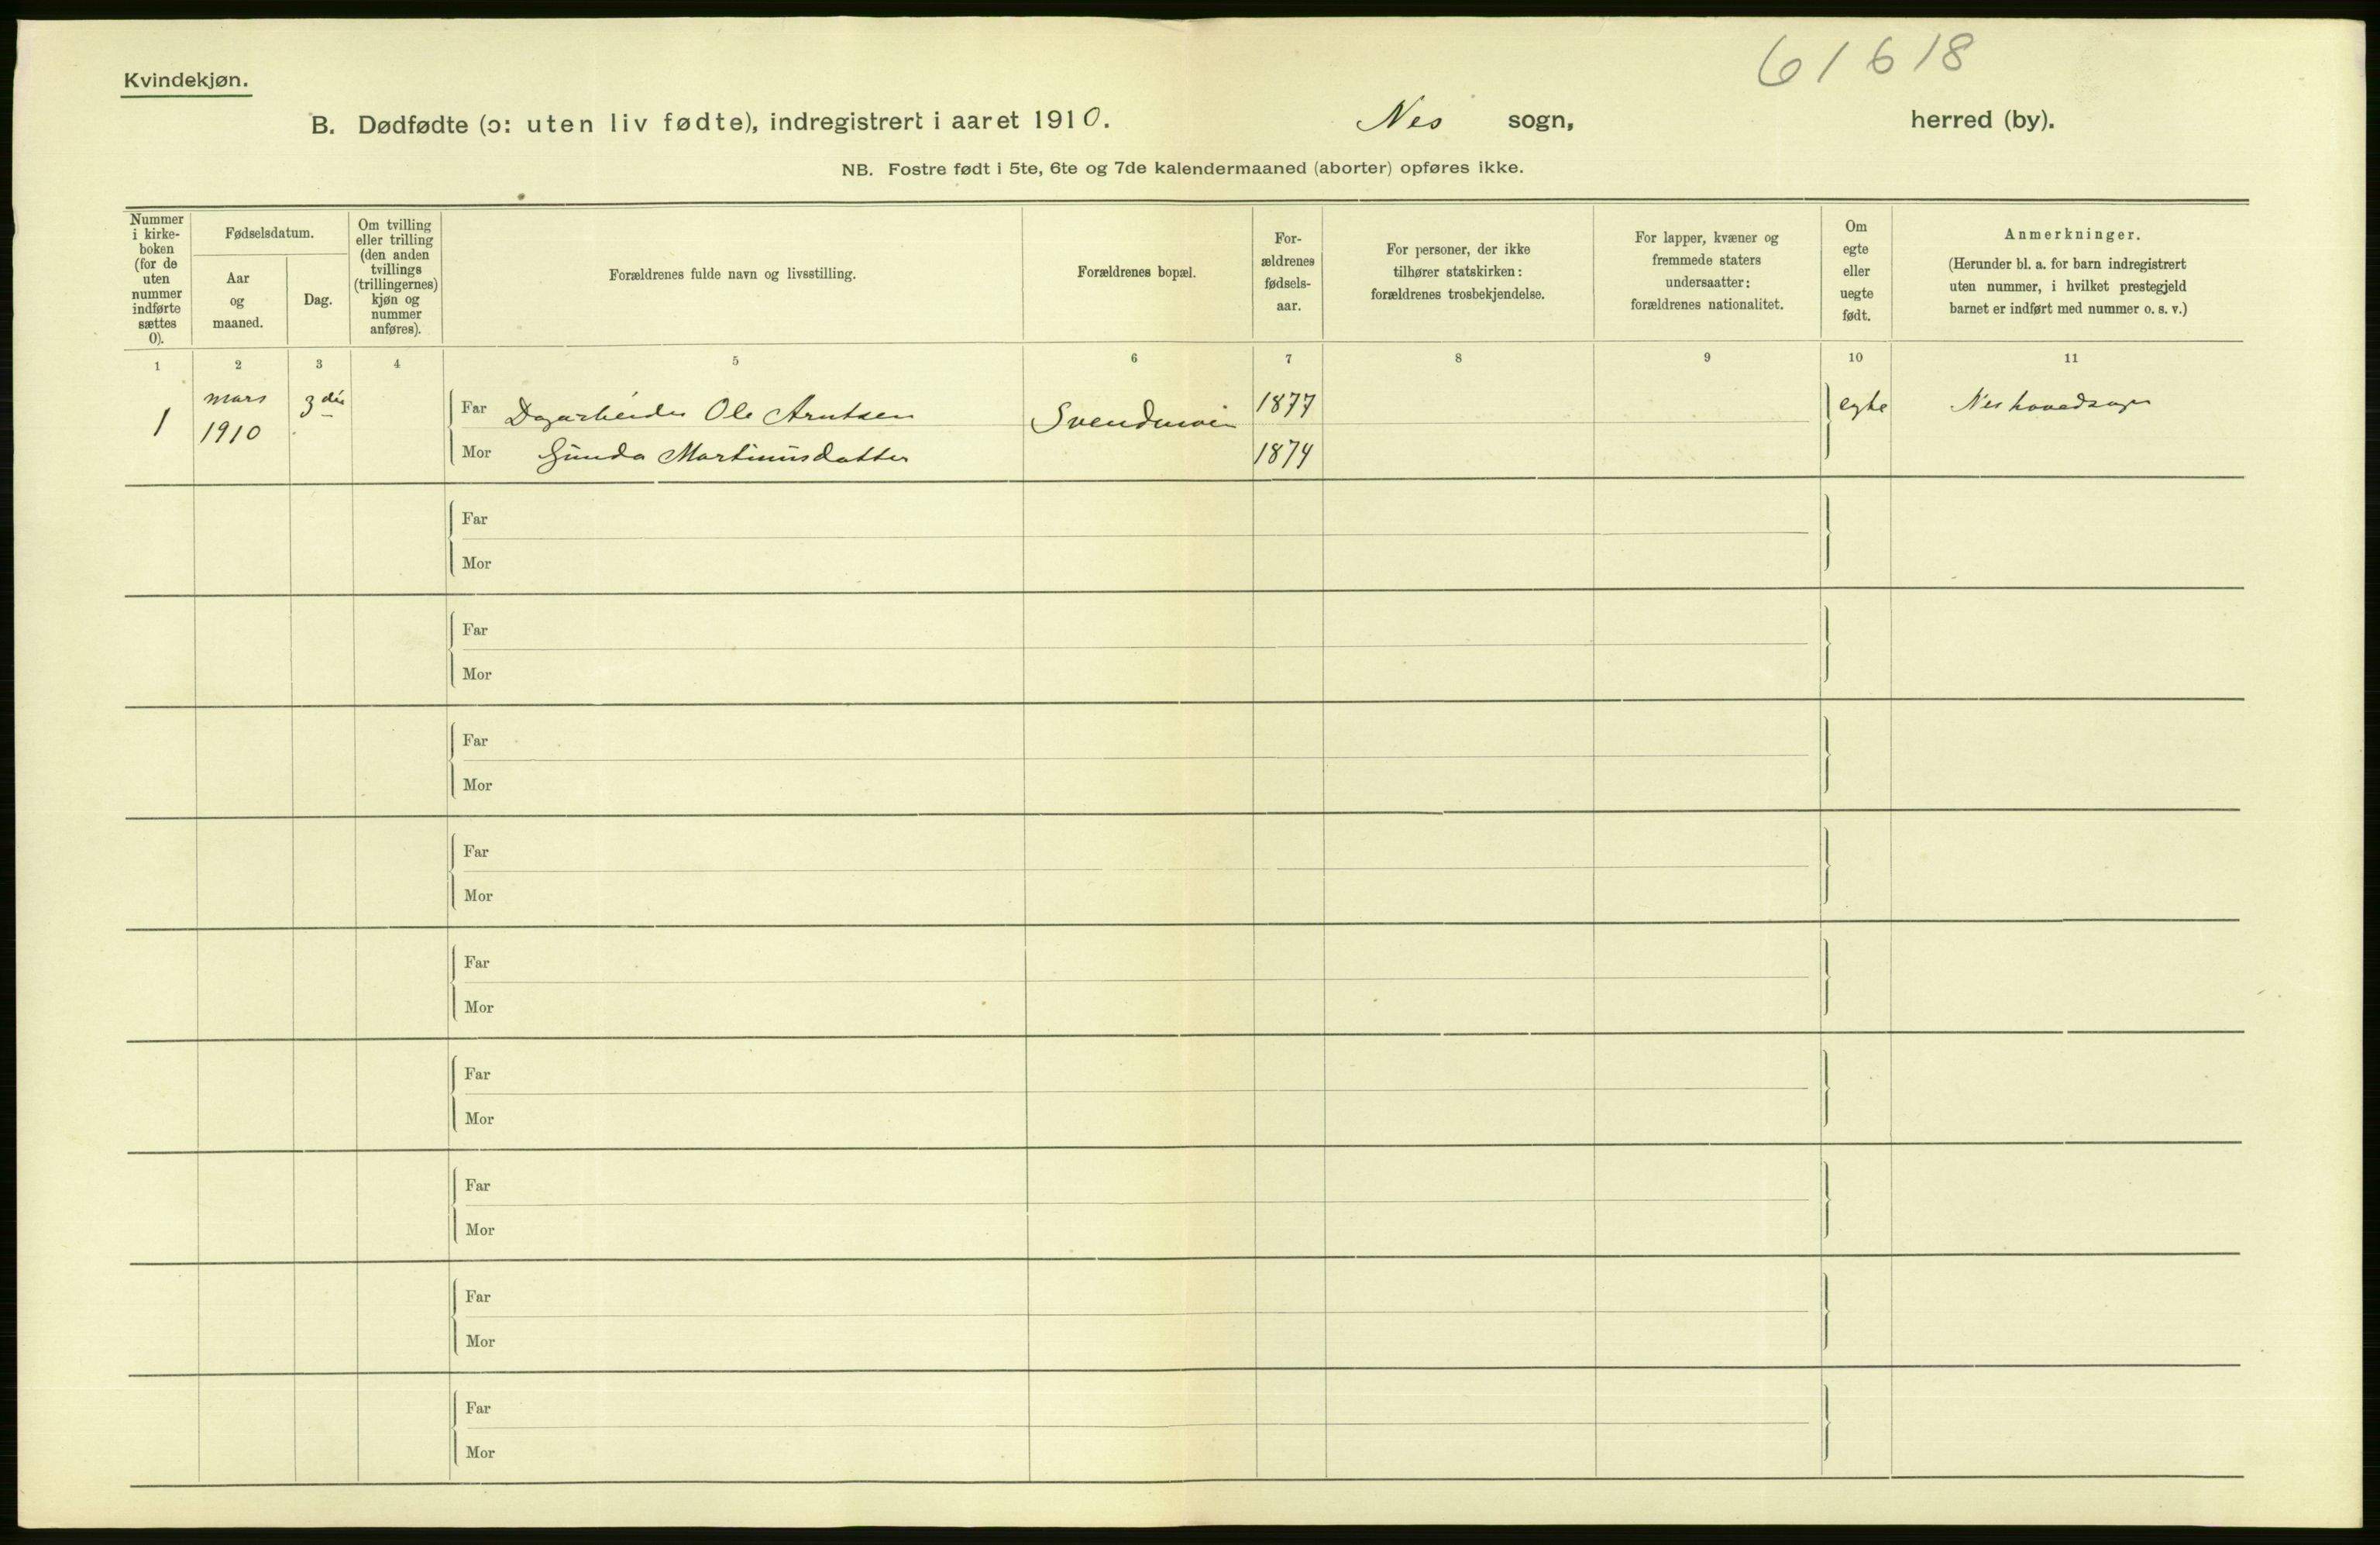 61618
Kvindekjøn.
B. Dødfødte (ɔ: uten liv fødte), indregistrert i aaret 1910. Nes sogn, herred (by).
NB. Fostre født i 5te, 6te og 7de kalendermaaned (aborter) opføres ikke.
Nummer
i kirke-
boken
(for de
uten
nummer
indførte
sættes
0).
Fødselsdatum.
Aar
og
maaned.
Dag.
Om tvilling
eller trilling
(den anden
tvillings
(trillingernes)
kjøn og
nummer
anføres).
Forældrenes fulde navn og livsstilling.
Forældrenes bopæl.
For-
ældrenes
fødsels-
aar.
For personer, der ikke
tilhører statskirken:
forældrenes trosbekjendelse.
For lapper, kvæner og
fremmede staters
undersaatter:
forældrenes nationalitet.
Om
egte
eller
uegte
født.
Anmerkninger.
(Herunder bl. a. for barn indregistrert
uten nummer, i hvilket prestegjeld
barnet er indført med nummer o. s. v.)
1 2 3 4 5 6 7 8 9 10 11
1 mars 1910 3die
Far Dagarbeider Ole Arntsen 1877 egte Nes hovedsogn
Mor Gunda Martinusdatter 1874
Far
Mor
Far
Mor
Far
Mor
Far
Mor
Far
Mor
Far
Mor
Far
Mor
Far
Mor
Far
Mor